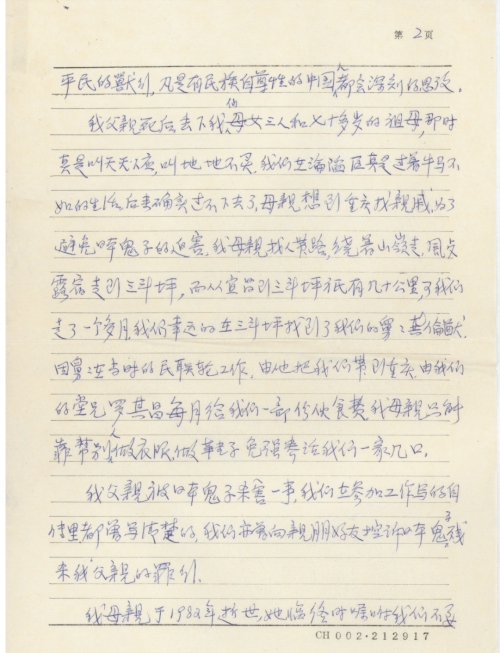 第 2 页
平民的獸行，凡是有民族自尊性的中国人都会深刻的思孜。
我父亲死后丢下我们母女三人和七十多岁的祖母，那时
真是叫天天不应，叫地地不灵，我们在淪陷区真是过着牛马不
如的生活后来确实过不下去了，母亲想到重庆找亲戚，为了
避免日本鬼子的迫害，我母亲找人带路，绕着山嶺走，風歺
露宿走到三斗坪，而从宜昌到三斗坪祇有几十公里了我们
走了一个多月，我们幸运的在三斗坪找到了我们的舅舅
因舅舅在当时的民联轮工作，由他把我们带到重庆，由我们
的堂兄罗其昌每月给我们一部份伙食费，我母亲只能
靠帮别人做衣服，做鞋子勉强养活我们一家几口。
我父亲被日本鬼子杀害一事，我们在参加工作写的自
传里都写清楚的，我们亦曾向亲朋好友控诉日本鬼子残
杀我父亲的罪行。
我母亲于1982年逝世，她临终时嘱咐我们不要
CH 002·212917